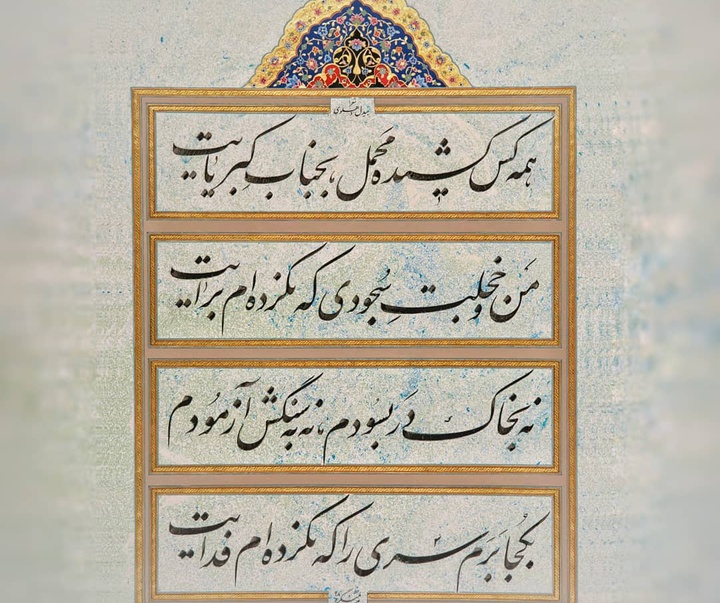 همه کس کشیده محمل بجناب کبریایت
من و خجلت سجودی که نکرده ام برایت
نه بخاک در بسودم نه به سنگش آزمودم
بکجا برم سری را که نکرده ام فدایت